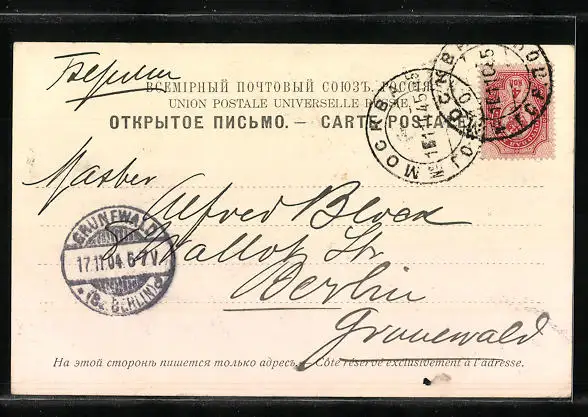 Берлин
ВСЕМІРНЫЙ ПОЧТОВЫЙ СОЮЗЪ. РОССІЯ.
UNION POSTALE UNIVERSELLE RUSSIE.
ОТКРЫТОЕ ПИСЬМО. — CARTE POSTALE
МОСКВА
Master
Alfred Block
Wallot Str.
Berlin
Grunewald
GRUNEWALD
17.11.04. 6-7V.
* (Bz. BERLIN) a
На этой сторонѣ пишется только адресъ. — Côté réservé exclusivement à l'adresse.